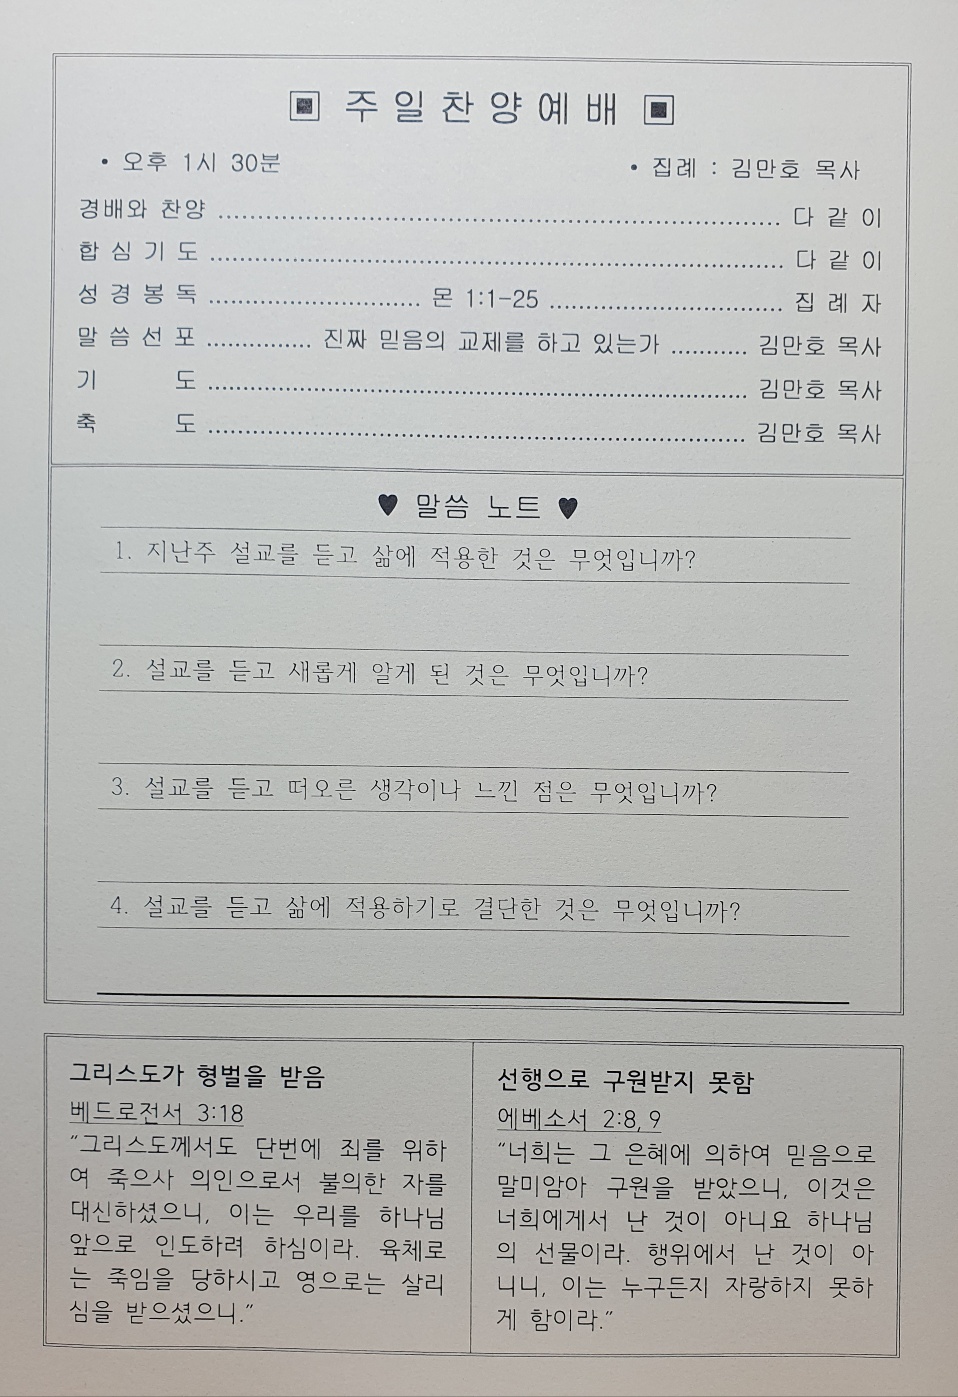 ▣ 주 일 찬 양 예 배 ▣
• 오후 1시 30분 • 집례 : 김만호 목사
경배와 찬양 ........................ 다 같 이
합 심 기 도 ........................ 다 같 이
성 경 봉 독 ............ 몬 1:1-25 ............ 집 례 자
말 씀 선 포 ............ 진짜 믿음의 교제를 하고 있는가 .......... 김만호 목사
기 도 ........................ 김만호 목사
축 도 ........................ 김만호 목사
♥ 말씀 노트 ♥
1. 지난주 설교를 듣고 삶에 적용한 것은 무엇입니까?
2. 설교를 듣고 새롭게 알게 된 것은 무엇입니까?
3. 설교를 듣고 떠오른 생각이나 느낀 점은 무엇입니까?
4. 설교를 듣고 삶에 적용하기로 결단한 것은 무엇입니까?
그리스도가 형벌을 받음
베드로전서 3:18
“그리스도께서도 단번에 죄를 위하
여 죽으사 의인으로서 불의한 자를
대신하셨으니, 이는 우리를 하나님
앞으로 인도하려 하심이라. 육체로
는 죽임을 당하시고 영으로는 살리
심을 받으셨으니.”
선행으로 구원받지 못함
에베소서 2:8, 9
“너희는 그 은혜에 의하여 믿음으로
말미암아 구원을 받았으니, 이것은
너희에게서 난 것이 아니요 하나님
의 선물이라. 행위에서 난 것이 아
니니, 이는 누구든지 자랑하지 못하
게 함이라.”